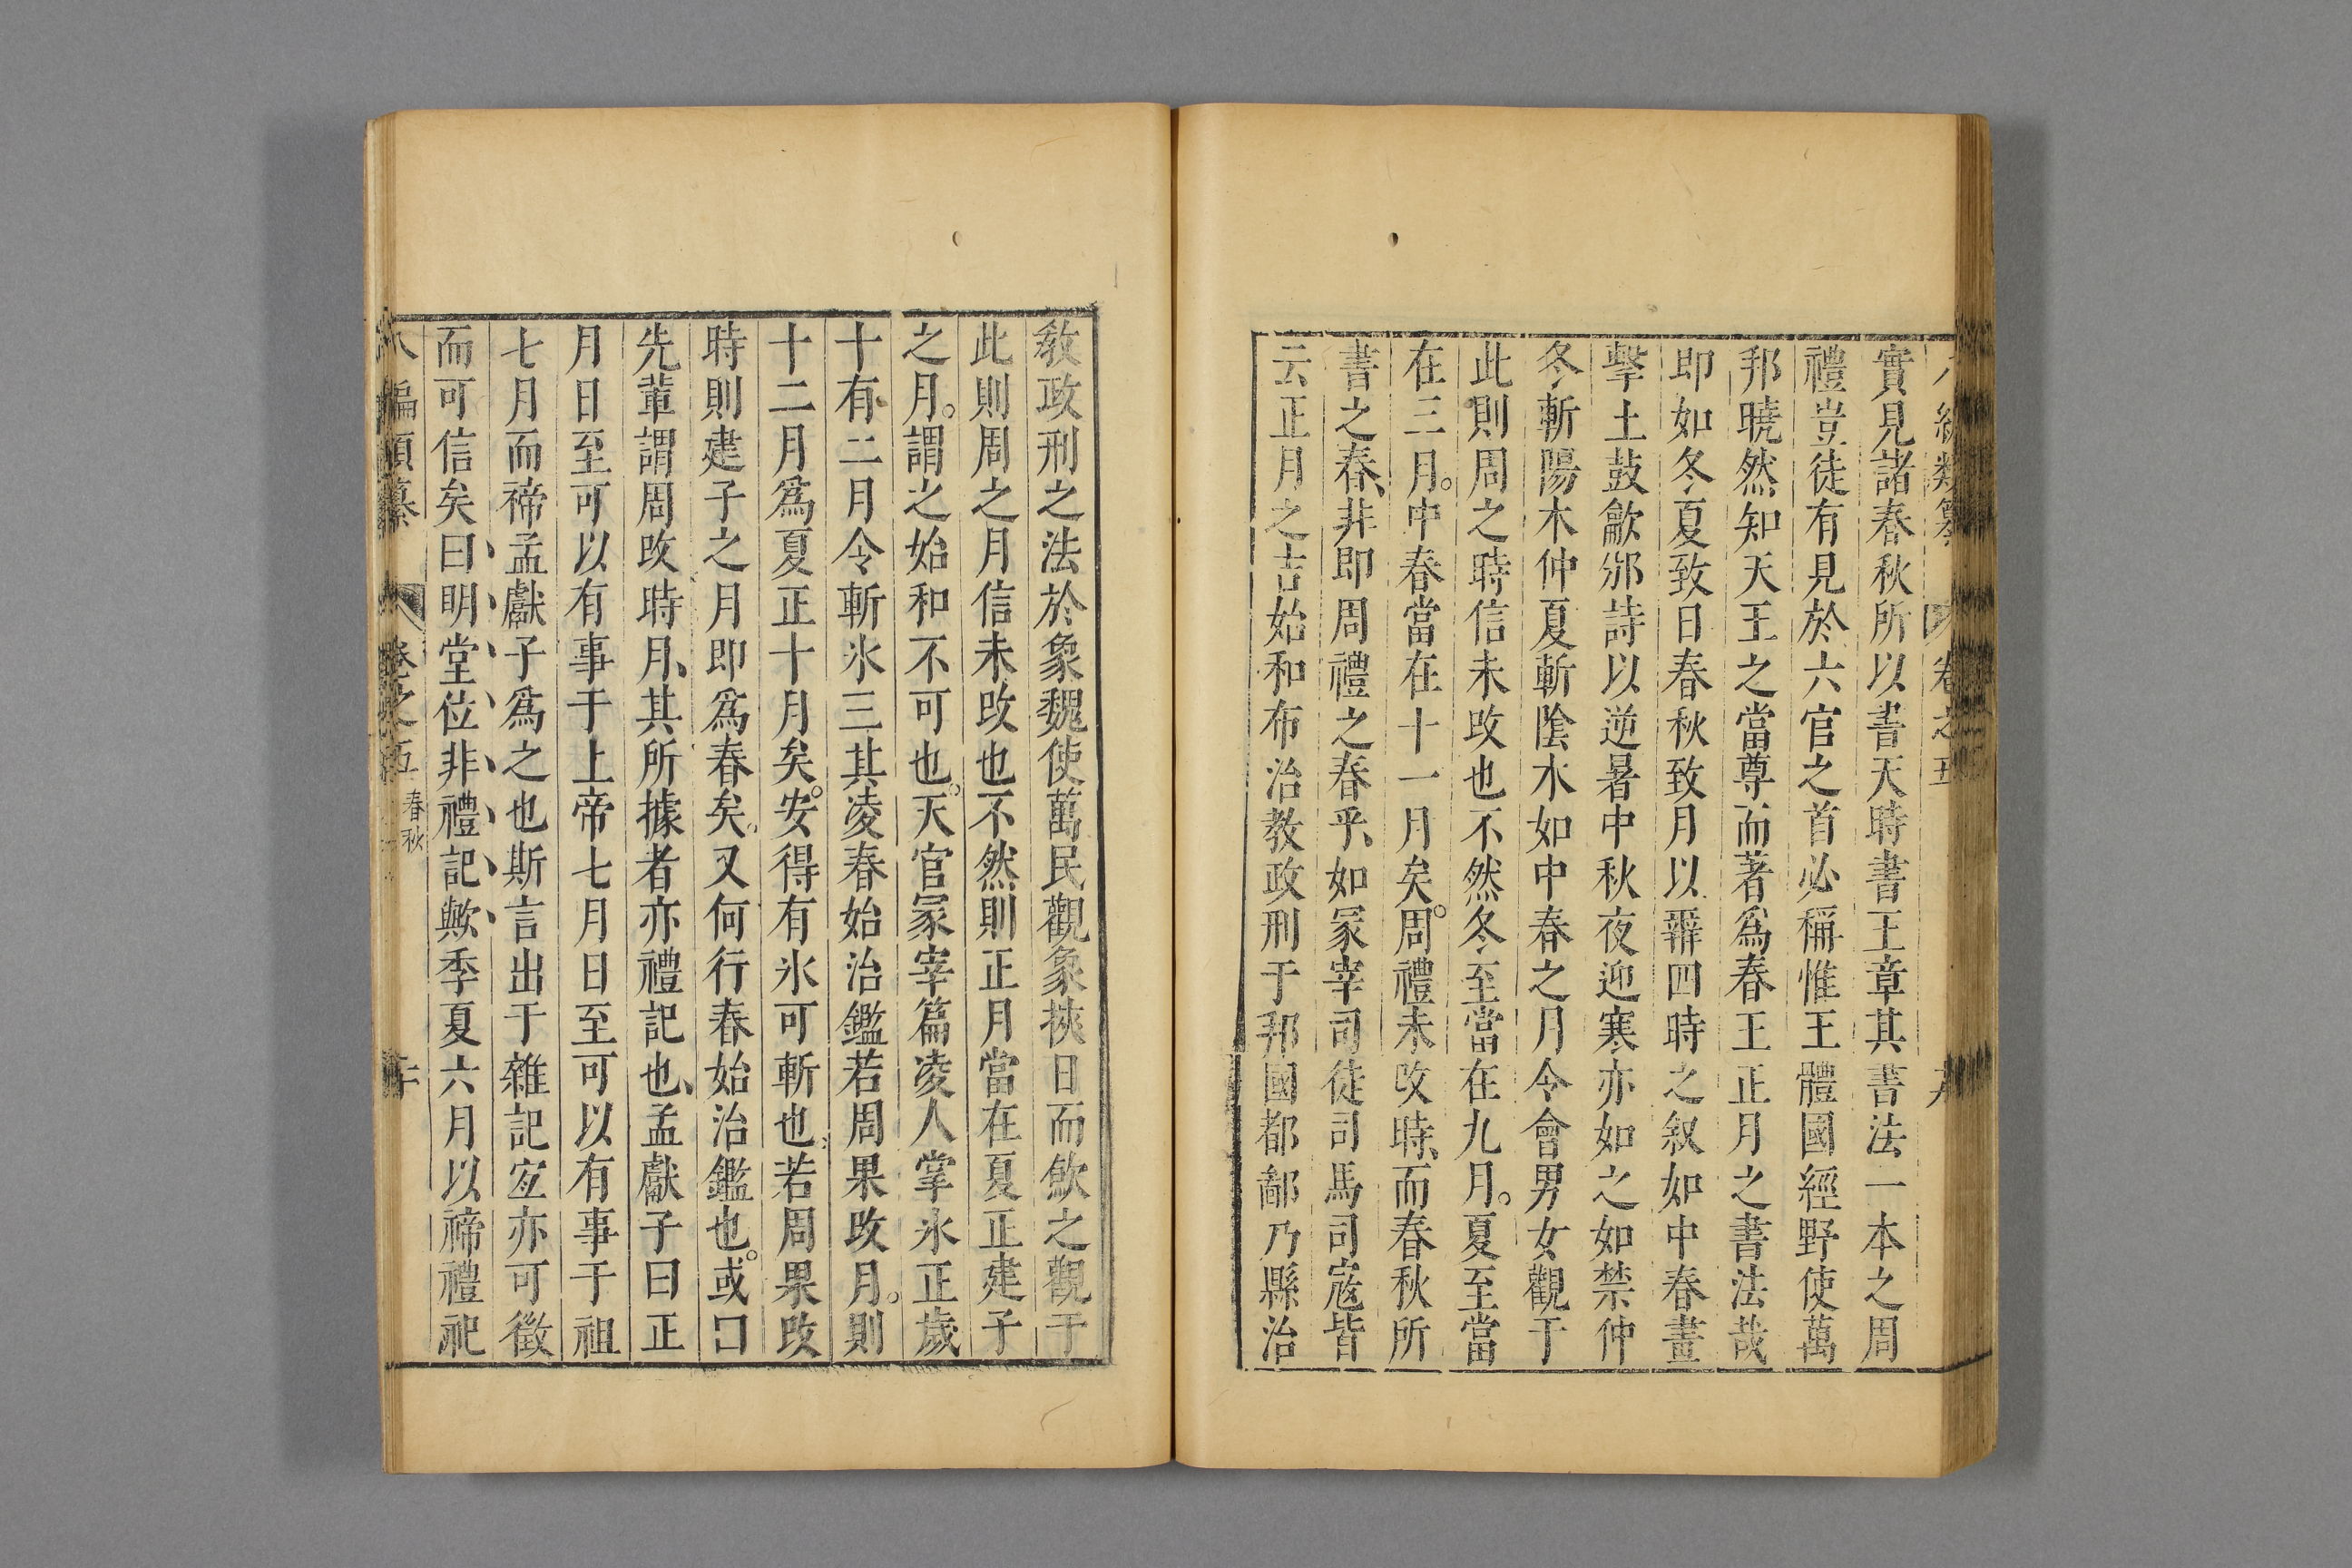 實見諸春秋所以書天時書王章其書法一本之周
禮豈徒有見於六官之首必稱惟王體國經野使萬
邦曉然知天王之當尊而著爲春王正月之書法哉
即如冬夏致日春秋致月以辨四時之叙如中春晝
擊土鼓龡邠詩以逆暑中秋夜迎寒亦如之如禁仲
冬斬陽木仲夏斬陰木如中春之月令會男女觀于
此則周之時信未改也不然冬至當在九月。夏至當
在三月。中春當在十一月矣。周禮未改時、而春秋所
書之春、非即周禮之春乎、如冢宰司徒司馬司寇皆
云正月之吉始和布治教政刑于邦國都鄙乃縣治
教政刑之法於象魏使萬民觀象挾日而斂之觀于
此則周之月信未改也不然則正月當在夏正建子
之月。謂之始和不可也。天官冢宰篇凌人掌氷正歲
十有二月令斬氷三其凌春始治鑑若周果改月。則
十二月爲夏正十月矣。安得有氷可斬也若周果改
時則建子之月即爲春矣。又何行春始治鑑也。或曰
先輩謂周改時月、其所據者亦禮記也、孟獻子曰正
月日至可以有事于上帝七月日至可以有事于祖
七月而禘孟獻子爲之也斯言出于雜記宐亦可徵
而可信矣曰明堂位非禮記歟季夏六月以禘禮祀
八編類纂 卷之五 春秋 二十